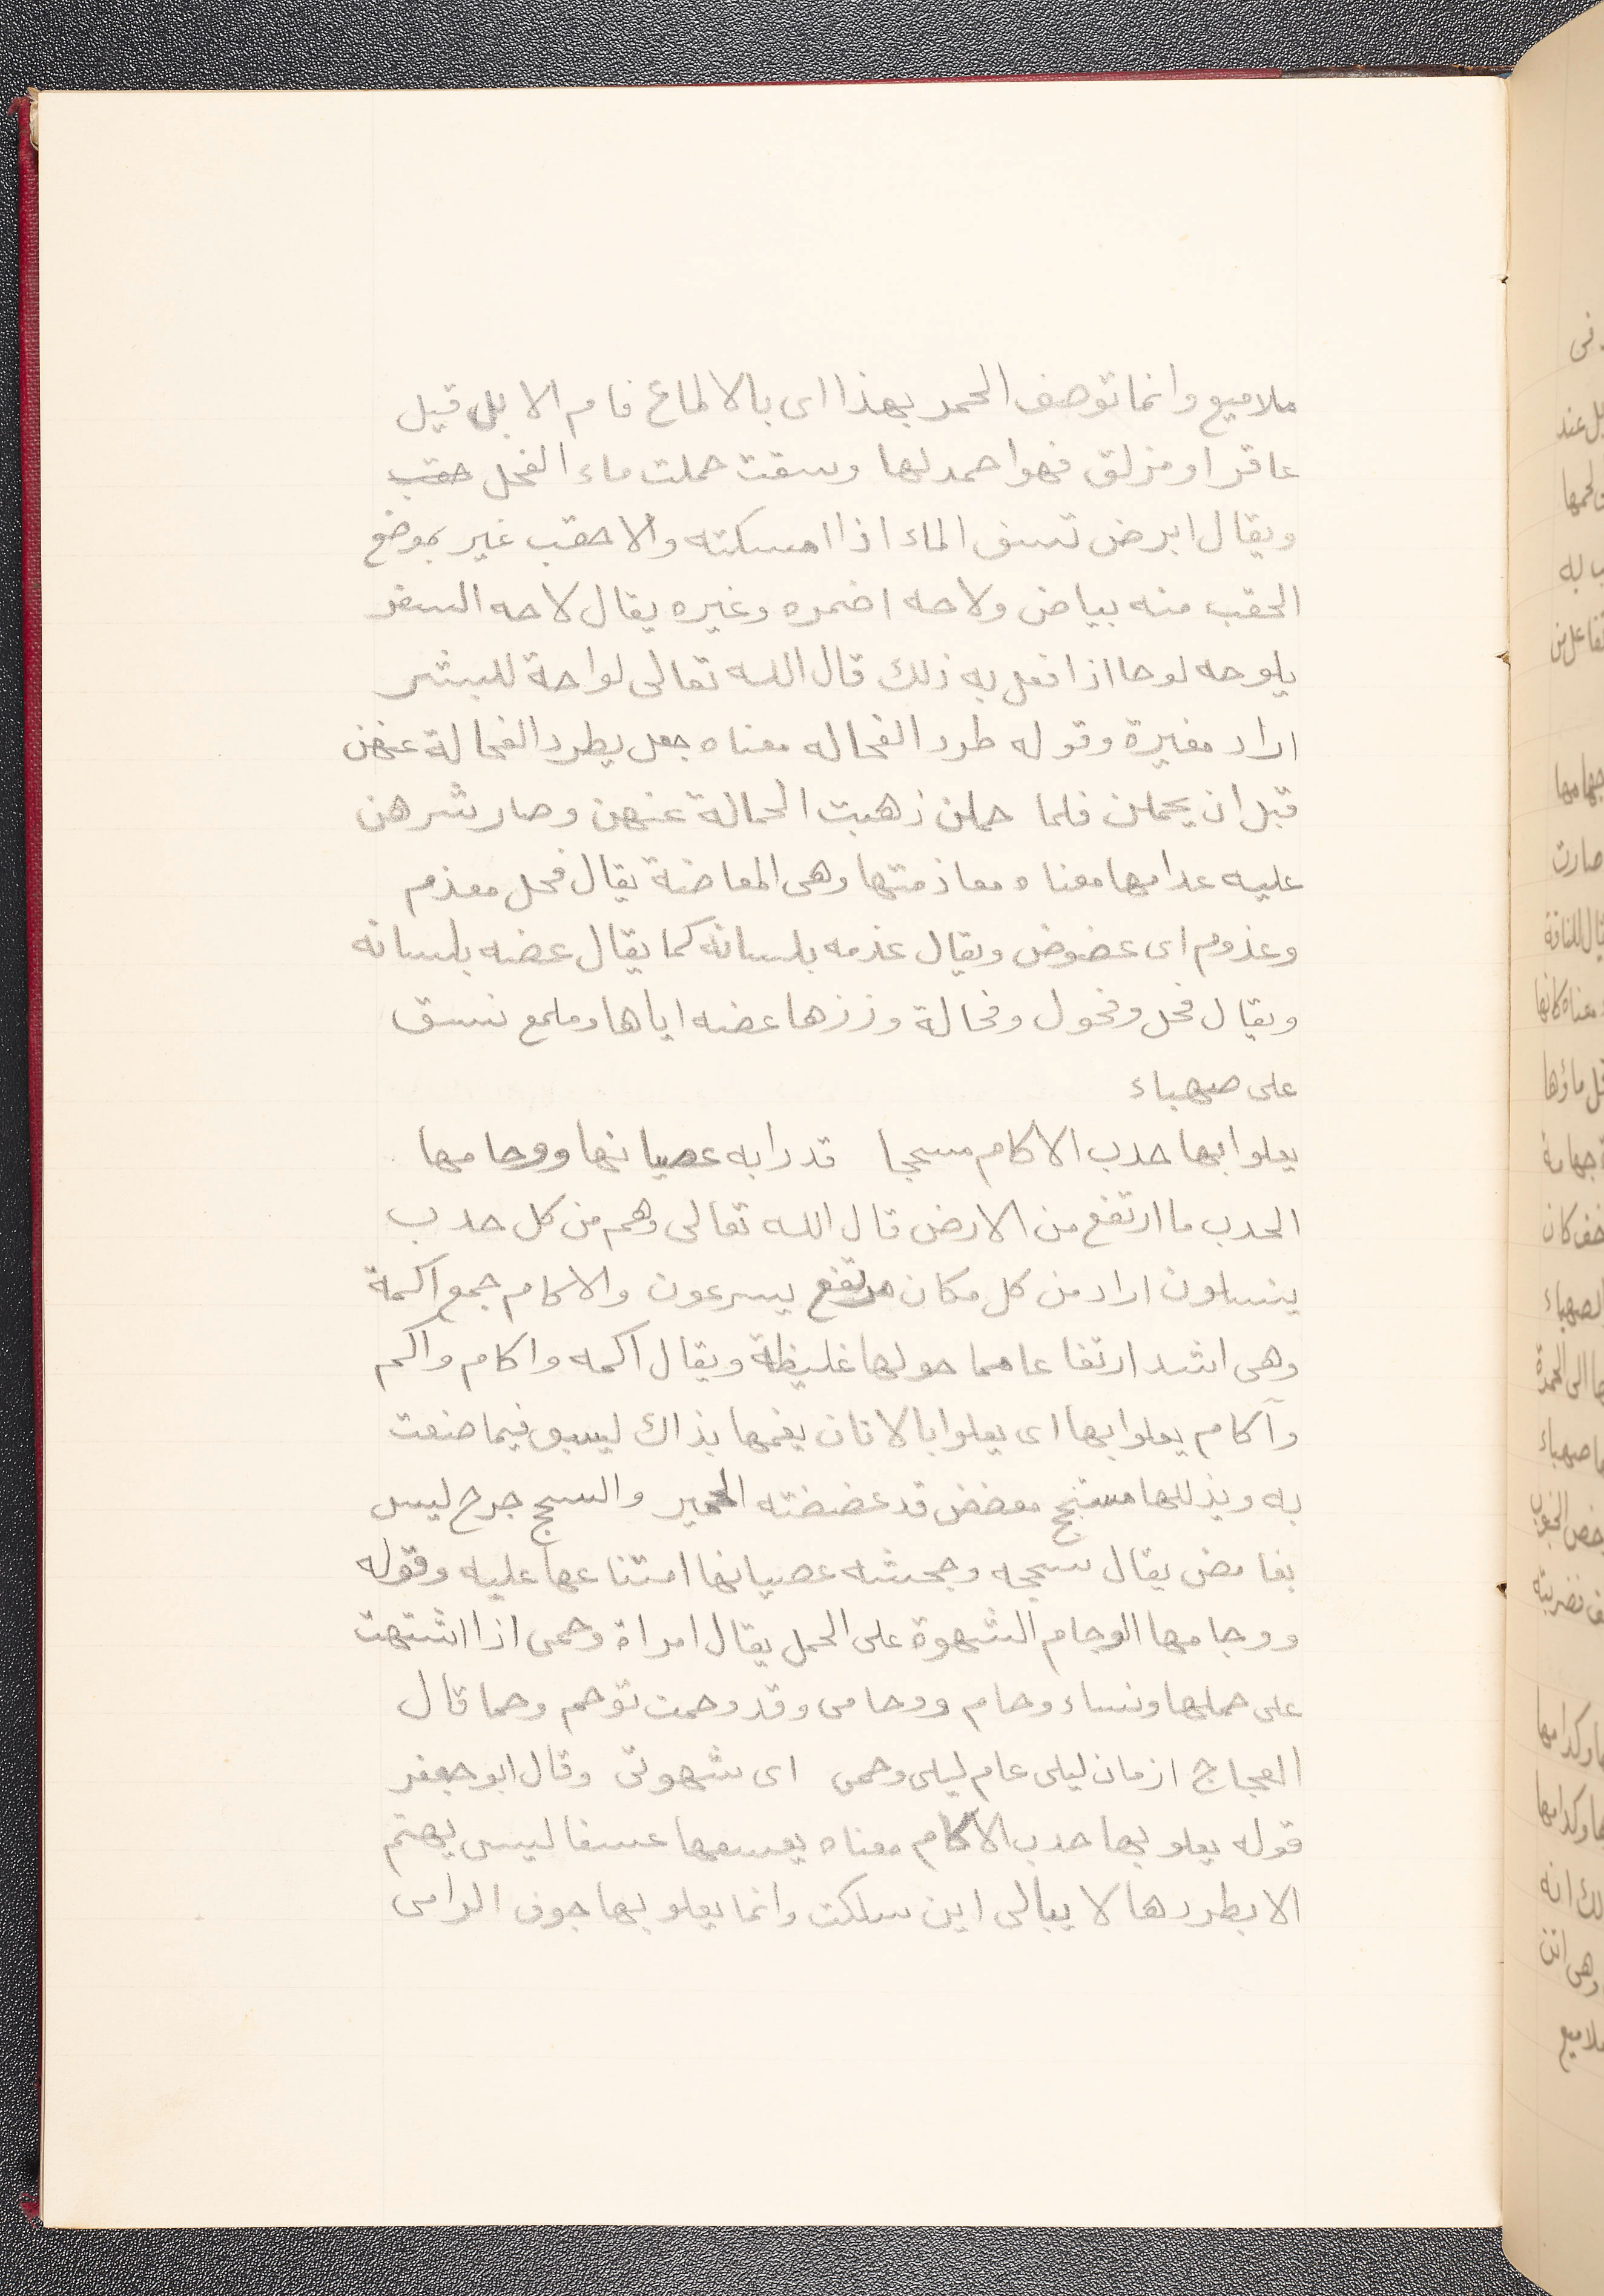 ملاميع وانما توصف الحمر بهذا اى بالالماع فام الابل قيل
عاقر او مزلق فهوا حمد لها وسقت حملت ماء الفحل حقب
ويقال ابرض تسق الماء اذا امسكته والاحقب غير بموضع
الحقب منه بياض ولاحه اضمره وغيره يقال لاحه السفر
يلوحه لوحا اذا فعل به ذلك قال الله تعالى لواحة للبشر
اراد مغيرة وقوله طرد الفحاله معناه جعل يطرد الفحالة عنهن
قبل ان يحملن فلما حملن ذهبت الحمالة عنهن وصار شرهن
عليه عدامها معناه معاذمتها وهى المعاضة يقال فحل معذم
وعذوم اى عضوض ويقال عذمه بلسانه كما يقال عضه بلسانه
ويقال فحل وفحول وفحالة وززها عضه اياها وملمع نسق
على صهباء
يعلوا بها حدب الاكام مسحجا قد رابه عصيانها ووحامها
الحدب ما ارتفع من الارض قال الله تعالى وهم من كل حدب
ينسلون اراد من كل مكان مرتفع يسرعون والاكام جمع اكمة
وهى اشد ارتفاعا مما حولها غليظة ويقال اكمه واكام واكم
وآكام يعلوا بها اى يعلوا بالاتان يغمها بذاك ليسبق فيما صنعت
به ويذللها مسحج معضض قد عضضته الحمير والسحج جرح ليس
بغامض يقال سحجه وجحشه عصيانها امتناعها عليه وقوله
ووحامها الوحام الشهوة على الحمل يقال امراة وحمى اذا اشتهت
على حملها ونساء وحام ووحامى وقد وحمت توحم وحما قال
العجاج ازمان ليلى عام ليلى وحمى اى شهوتى وقال ابو جعفر
قوله يعلو بها حدب الاكام معناه يعسفها عسفا ليس يهتم
الا بطردها لا يبالى اين سلكت وانما يعلو بها جوف الرامى